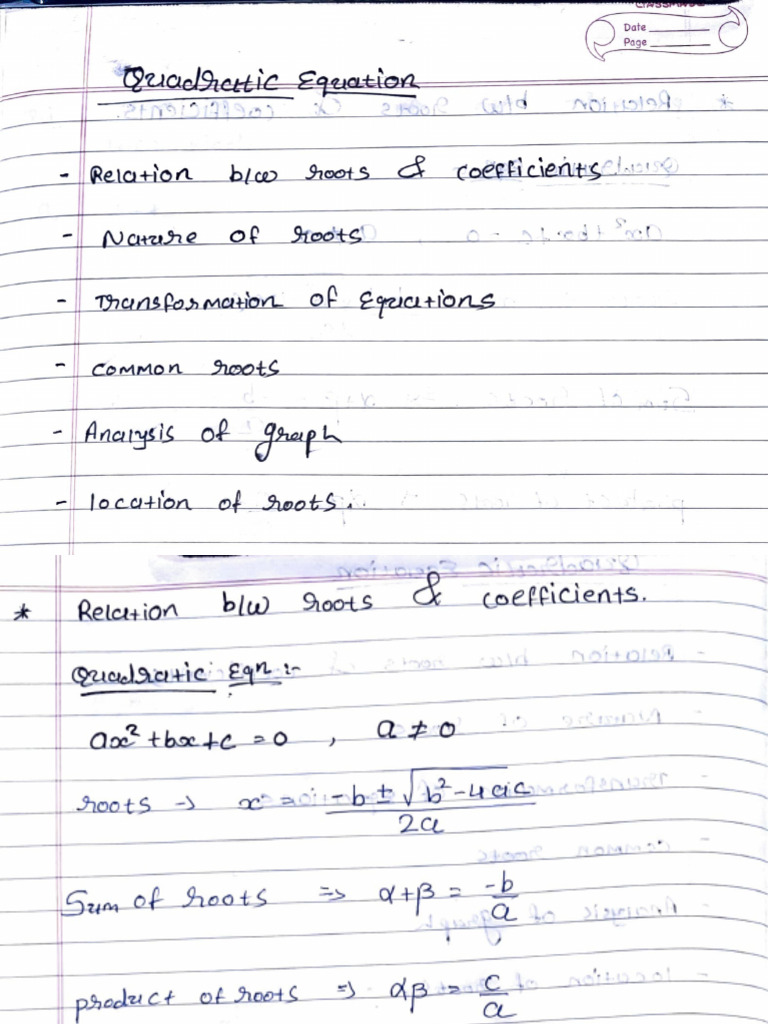 CLASSMATE
Date
Page
Quadratic Equation
- Relation b/w roots & coefficients
- Nature of roots
- Transformation of Equations
- common roots
- Analysis of graph
- location of roots.
* Relation b/w roots & coefficients.
Quadratic Eqn :-
ax²+bx+c = 0 , a ≠ 0
roots → x = -b ± √b²-4ac / 2a
Sum of roots ⇒ α+β = -b/a
product of roots ⇒ αβ = c/a